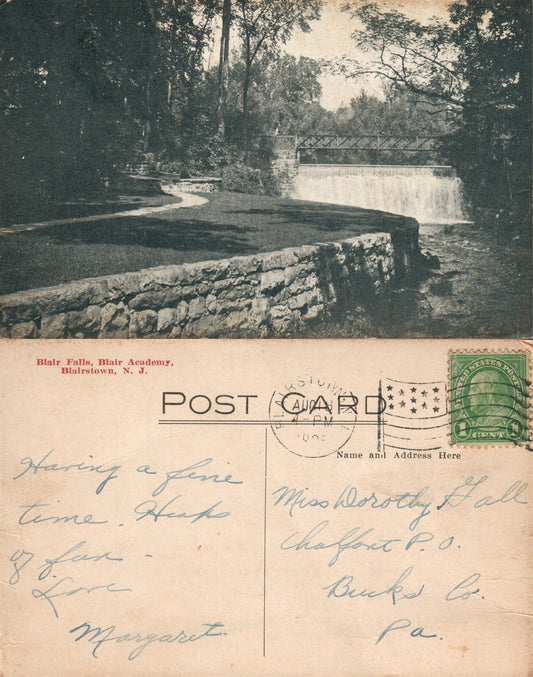 Blair Falls, Blair Academy,
Blairstown, N. J.
POST CARD
BLAIRSTOWN
AUG
PM
UNITED STATES POSTAGE
1 CENT 1
Name and Address Here
Having a fine
time. Heaps
of fun -
Love
Margaret.
Miss Dorothy Gall
Chalfont P. O.
Bucks Co.
Pa.